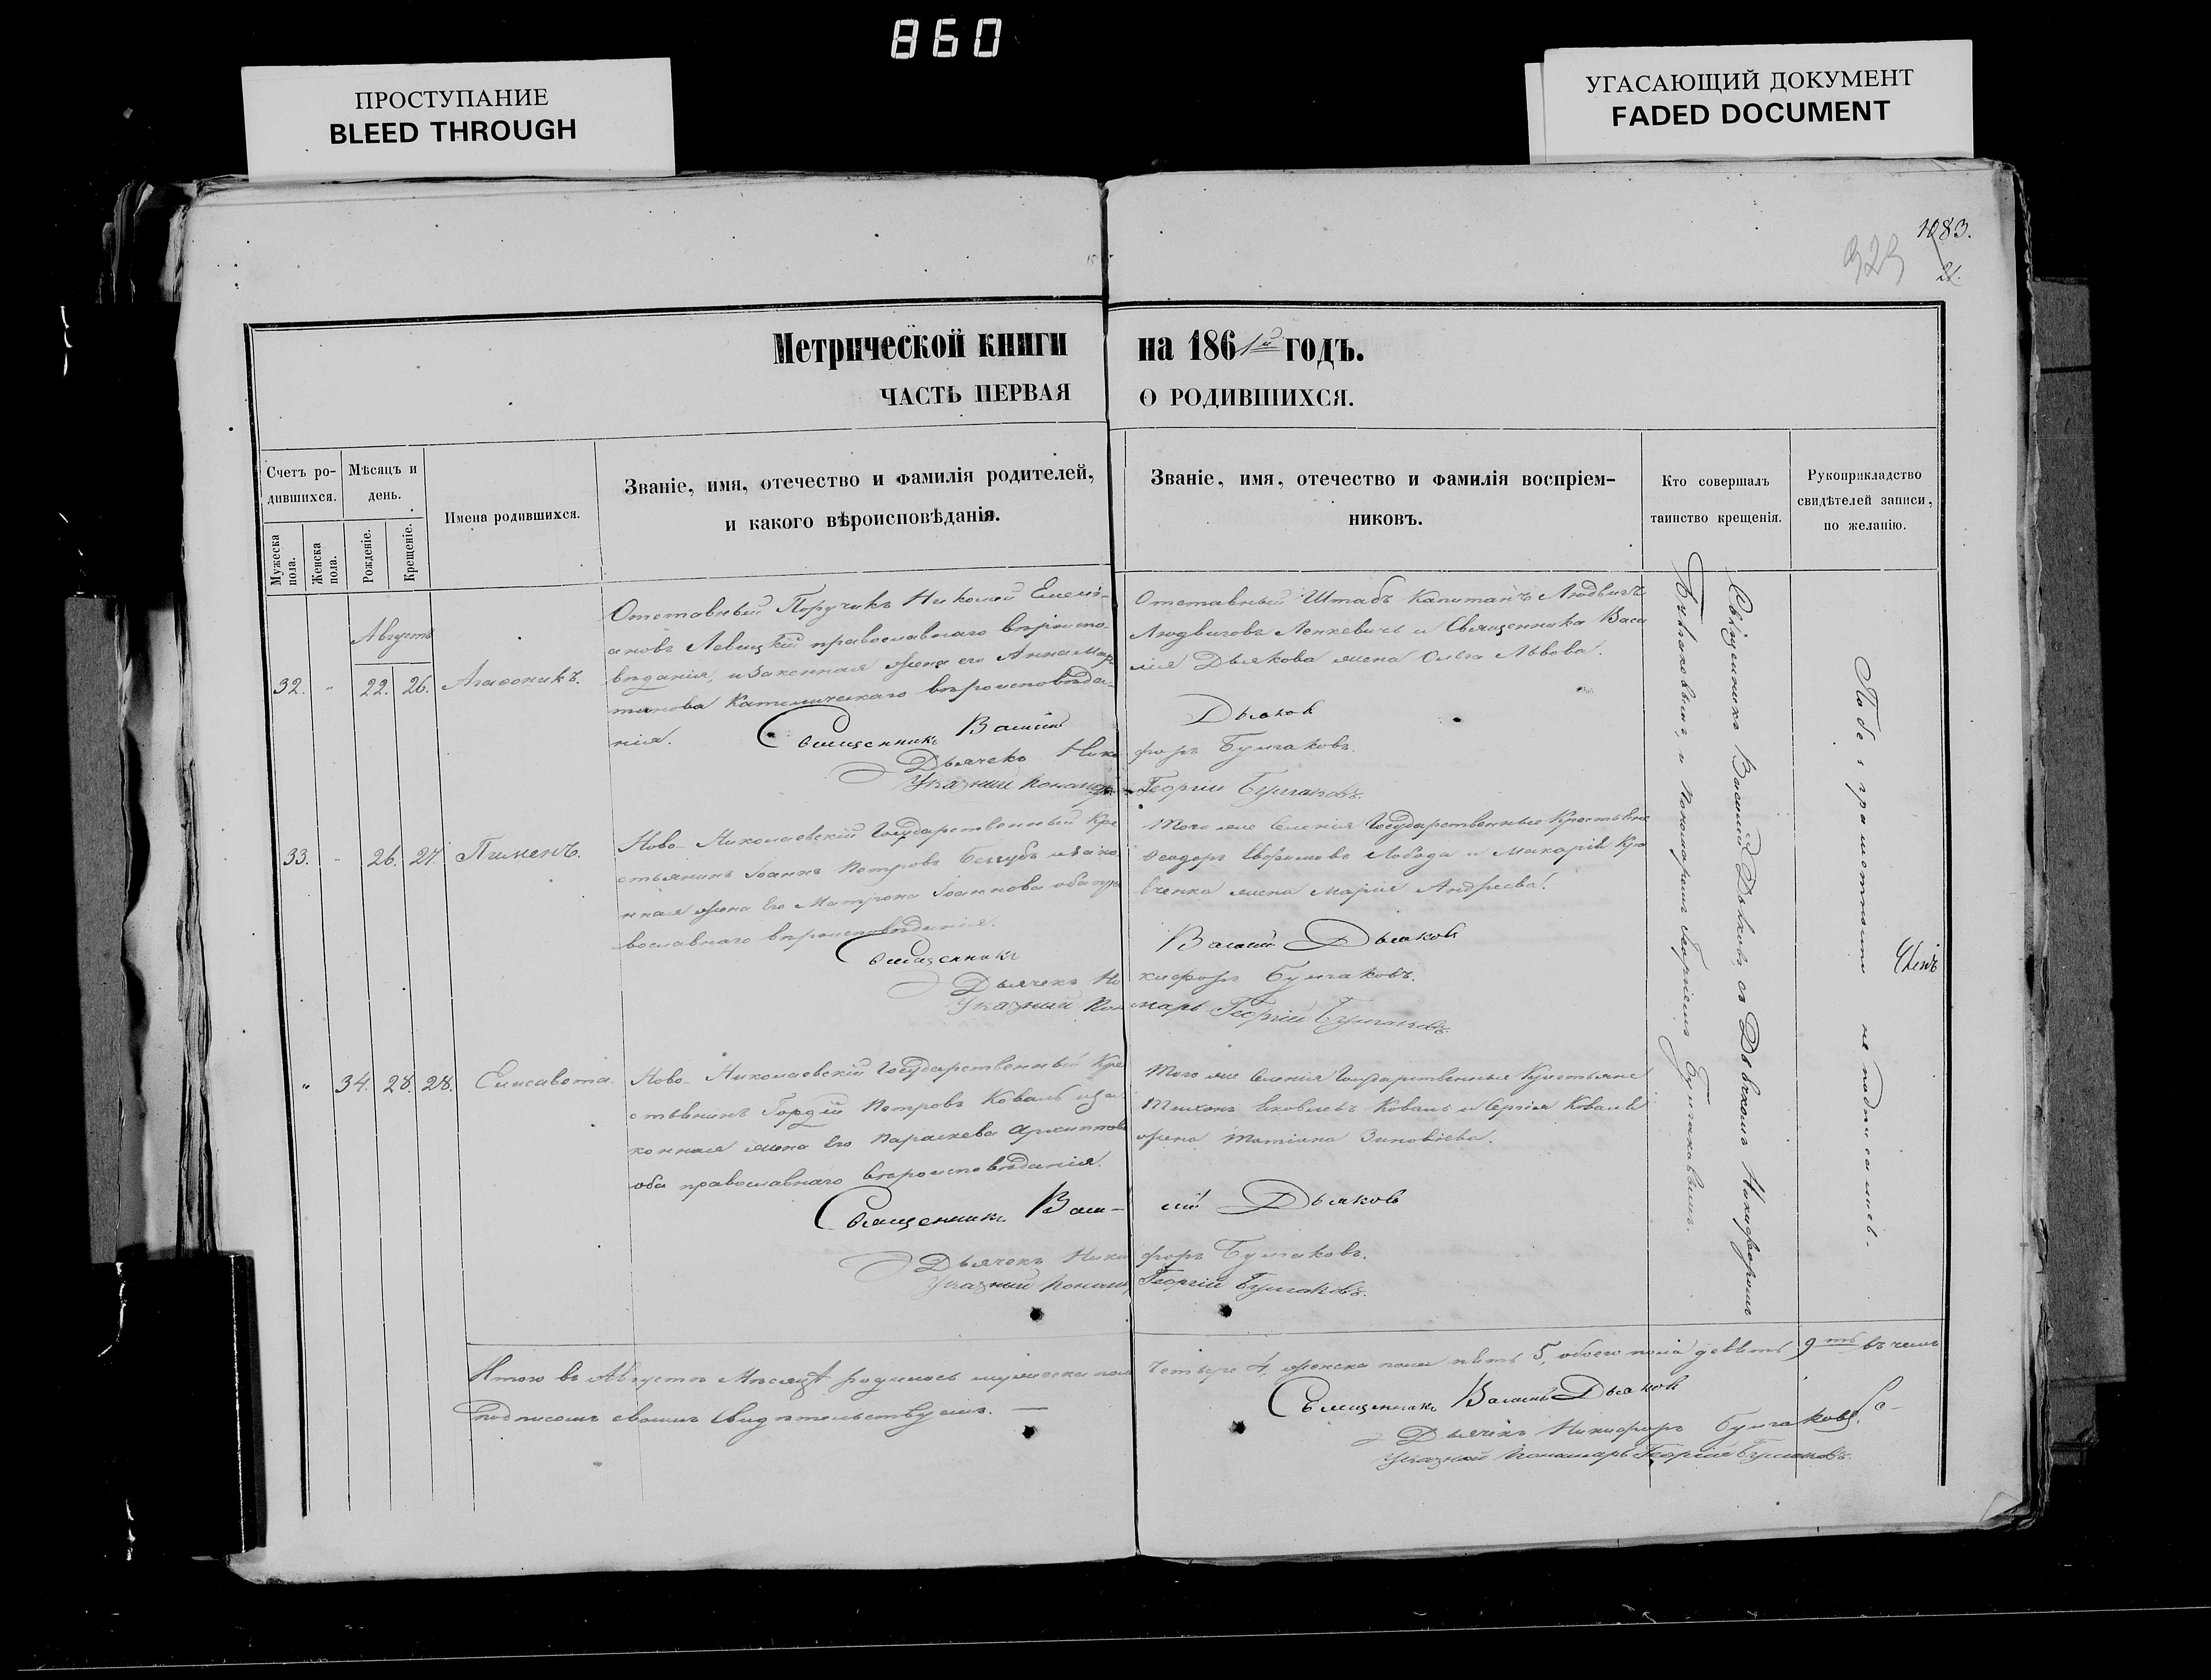 860
ПРОСТУПАНИЕ
BLEED THROUGH
УГАСАЮЩИЙ ДОКУМЕНТ
FADED DOCUMENT
1083.
929
21.
Метрической книги на 1861й годъ.
ЧАСТЬ ПЕРВАЯ О РОДИВШИХСЯ.
Счетъ ро-
дившихся.
Мужеска пола.
Женска пола.
Мѣсяцъ и
день.
Рожденіе.
Крещеніе.
Имена родившихся.
Званіе, имя, отечество и фамилія родителей,
и какого вѣроисповѣданія.
Званіе, имя, отечество и фамилія воспріем-
никовъ.
Кто совершалъ
таинство крещенія.
Рукоприкладство
свидѣтелей записи,
по желанію.
Августъ
32. " 22. 26. Агафоникъ.
Отставный Поручикъ Николай Емелі-
ановъ Левицкій православнаго вѣроиспо-
вѣданія, и законная жена его Анна Мар
тинова Католическаго вѣроисповѣда-
нія.
Отставный Штабъ Капитанъ Людвигъ
Людвиговъ Ленкевичъ и Священника Васи
лія Дьякова жена Ольга Львова.
Священникъ Василій Дьяковъ
Дьячекъ Никифоръ Булгаковъ.
Указный Пономарь Георгій Булгаковъ.
33. " 26. 27. Пименъ.
Ново-Николаевскій Государственный Кре
стьянинъ Іоаннъ Петровъ и зако
нная жена его Матрона Іоаннова оба пра
вославнаго вѣроисповѣданія.
Того же Селенія Государственные Крестьяне
Феодоръ Евфимовъ Лобода и Макарія Кра
вченка жена Марія Андреева.
Священникъ Василій Дьяковъ
Дьячекъ Никифоръ Булгаковъ.
Указный Пономарь Георгій Булгаковъ.
" 34. 28. 28. Елисавета.
Ново-Николаевскій Государственный Кре
стьянинъ Гордій Петровъ Коваль и за
конная жена его Параскева Архиппова
оба православнаго вѣроисповѣданія.
Того же Селенія Государственные Крестьяне
Тихонъ Яковлевъ Коваль и Сергія Коваля
жена Татіана Зиновіева.
Священникъ Василій Дьяковъ
Дьячекъ Никифоръ Булгаковъ.
Указный Пономарь Георгій Булгаковъ.
Священникъ Василій Дьяковъ, съ Дьячкомъ Никифоромъ
Булгаковымъ, и Пономаремъ Георгіемъ Булгаковымъ.
По безграмотности не подписались.
Итого въ Августѣ Мѣсяцѣ родилось мужеска пола четыре 4, женска пола пять 5, обоего пола девять 9ть въ чемъ
подписомъ своимъ свидѣтельствуемъ. —
Священникъ Василій Дьяковъ
Дьячекъ Никифоръ Булгаковъ.
Указный Пономарь Георгій Булгаковъ.